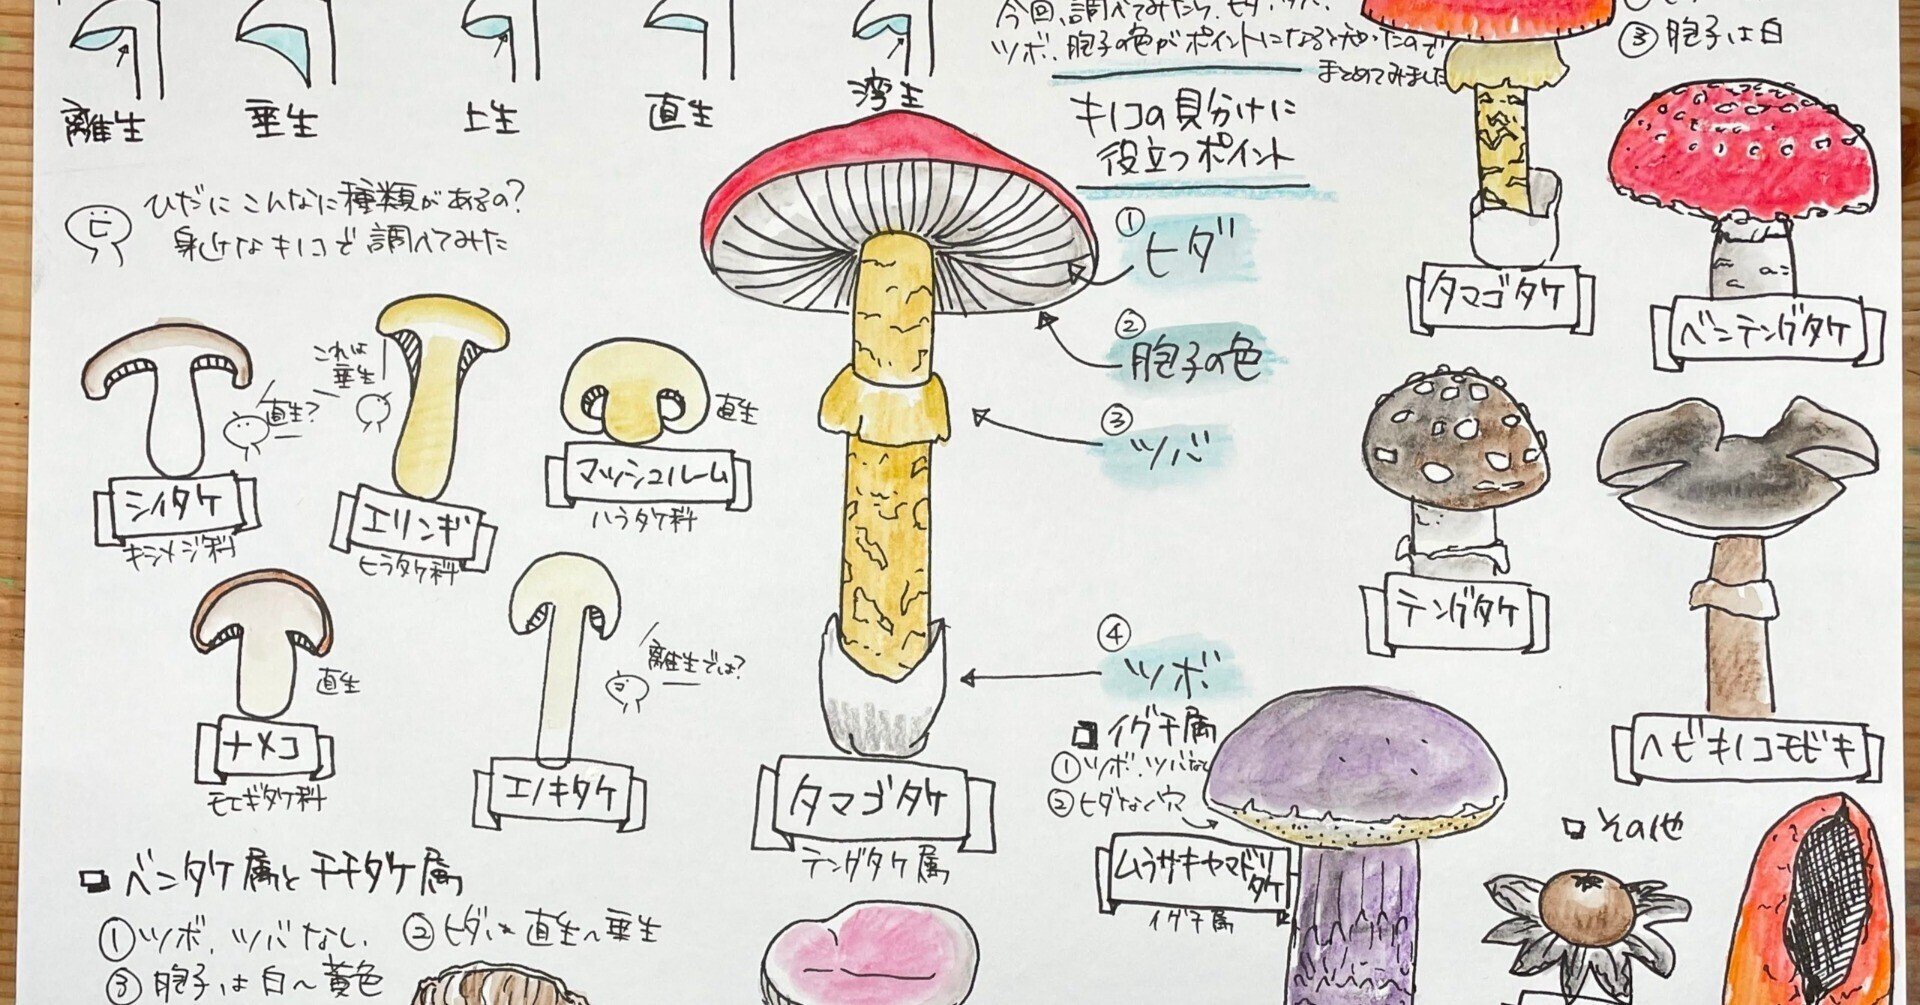 離生
垂生
上生
直生
湾生
今回、調べてみたら、ヒダ、ツバ、
ツボ、胞子の色がポイントになると分かったので
まとめてみました
③胞子は白
キノコの見分けに
役立つポイント
①ヒダ
②胞子の色
③ツバ
④ツボ
ひだにこんなに種類があるの?
身近なキノコで調べてみた
直生?
シイタケ
キシメジ科
これは
垂生
エリンギ
ヒラタケ科
直生
マッシュルーム
ハラタケ科
直生
ナメコ
モエギタケ科
離生では?
エノキタケ
タマゴタケ
テングタケ属
タマゴタケ
ベニテングタケ
テングタケ
ヘビキノコモドキ
イグチ属
①ツボ、ツバなし
②ヒダなく穴
ムラサキヤマドリ
タケ
イグチ属
その他
ベニタケ属とチチタケ属
①ツボ、ツバなし、
②ヒダは直生~垂生
③胞子は白~黄色